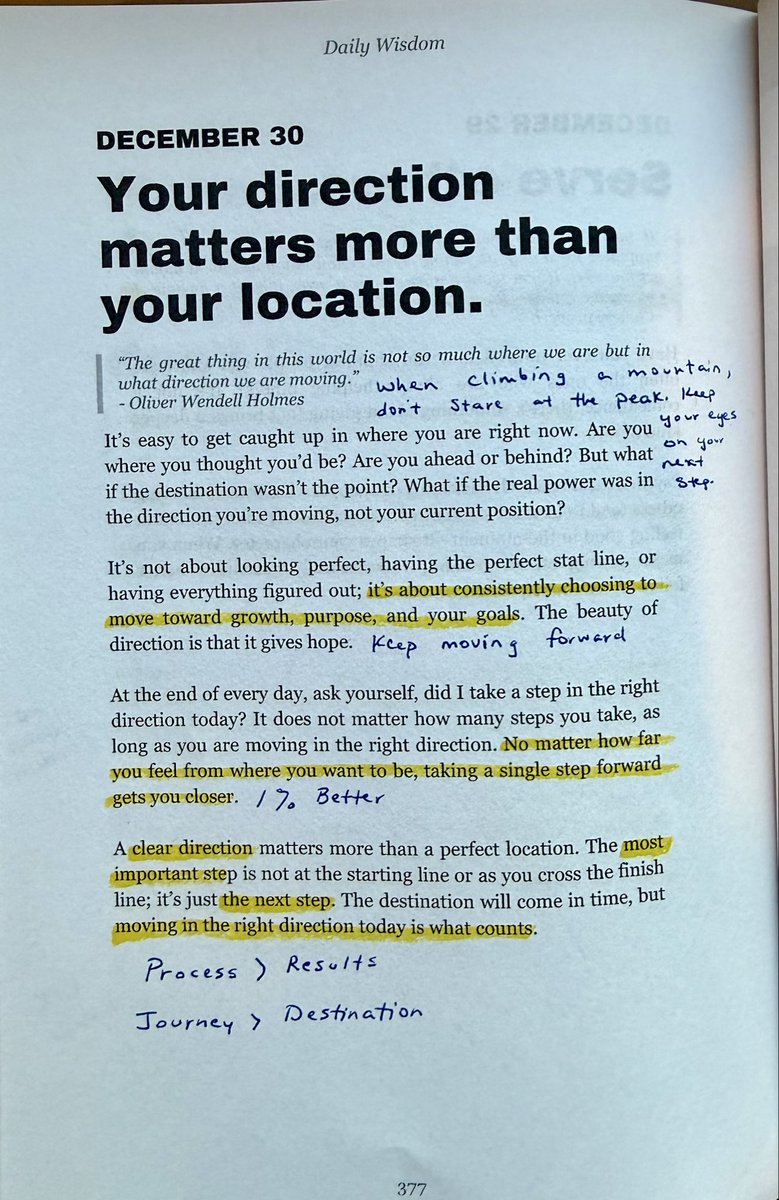 Daily Wisdom
DECEMBER 30
Your direction
matters more than
your location.
“The great thing in this world is not so much where we are but in
what direction we are moving.”
- Oliver Wendell Holmes
when climbing a mountain,
don't stare at the peak. Keep
your eyes
on your
next
step.
It’s easy to get caught up in where you are right now. Are you
where you thought you’d be? Are you ahead or behind? But what
if the destination wasn’t the point? What if the real power was in
the direction you’re moving, not your current position?
It’s not about looking perfect, having the perfect stat line, or
having everything figured out; it’s about consistently choosing to
move toward growth, purpose, and your goals. The beauty of
direction is that it gives hope. Keep moving forward
At the end of every day, ask yourself, did I take a step in the right
direction today? It does not matter how many steps you take, as
long as you are moving in the right direction. No matter how far
you feel from where you want to be, taking a single step forward
gets you closer. 1% Better
A clear direction matters more than a perfect location. The most
important step is not at the starting line or as you cross the finish
line; it’s just the next step. The destination will come in time, but
moving in the right direction today is what counts.
Process > Results
Journey > Destination
377